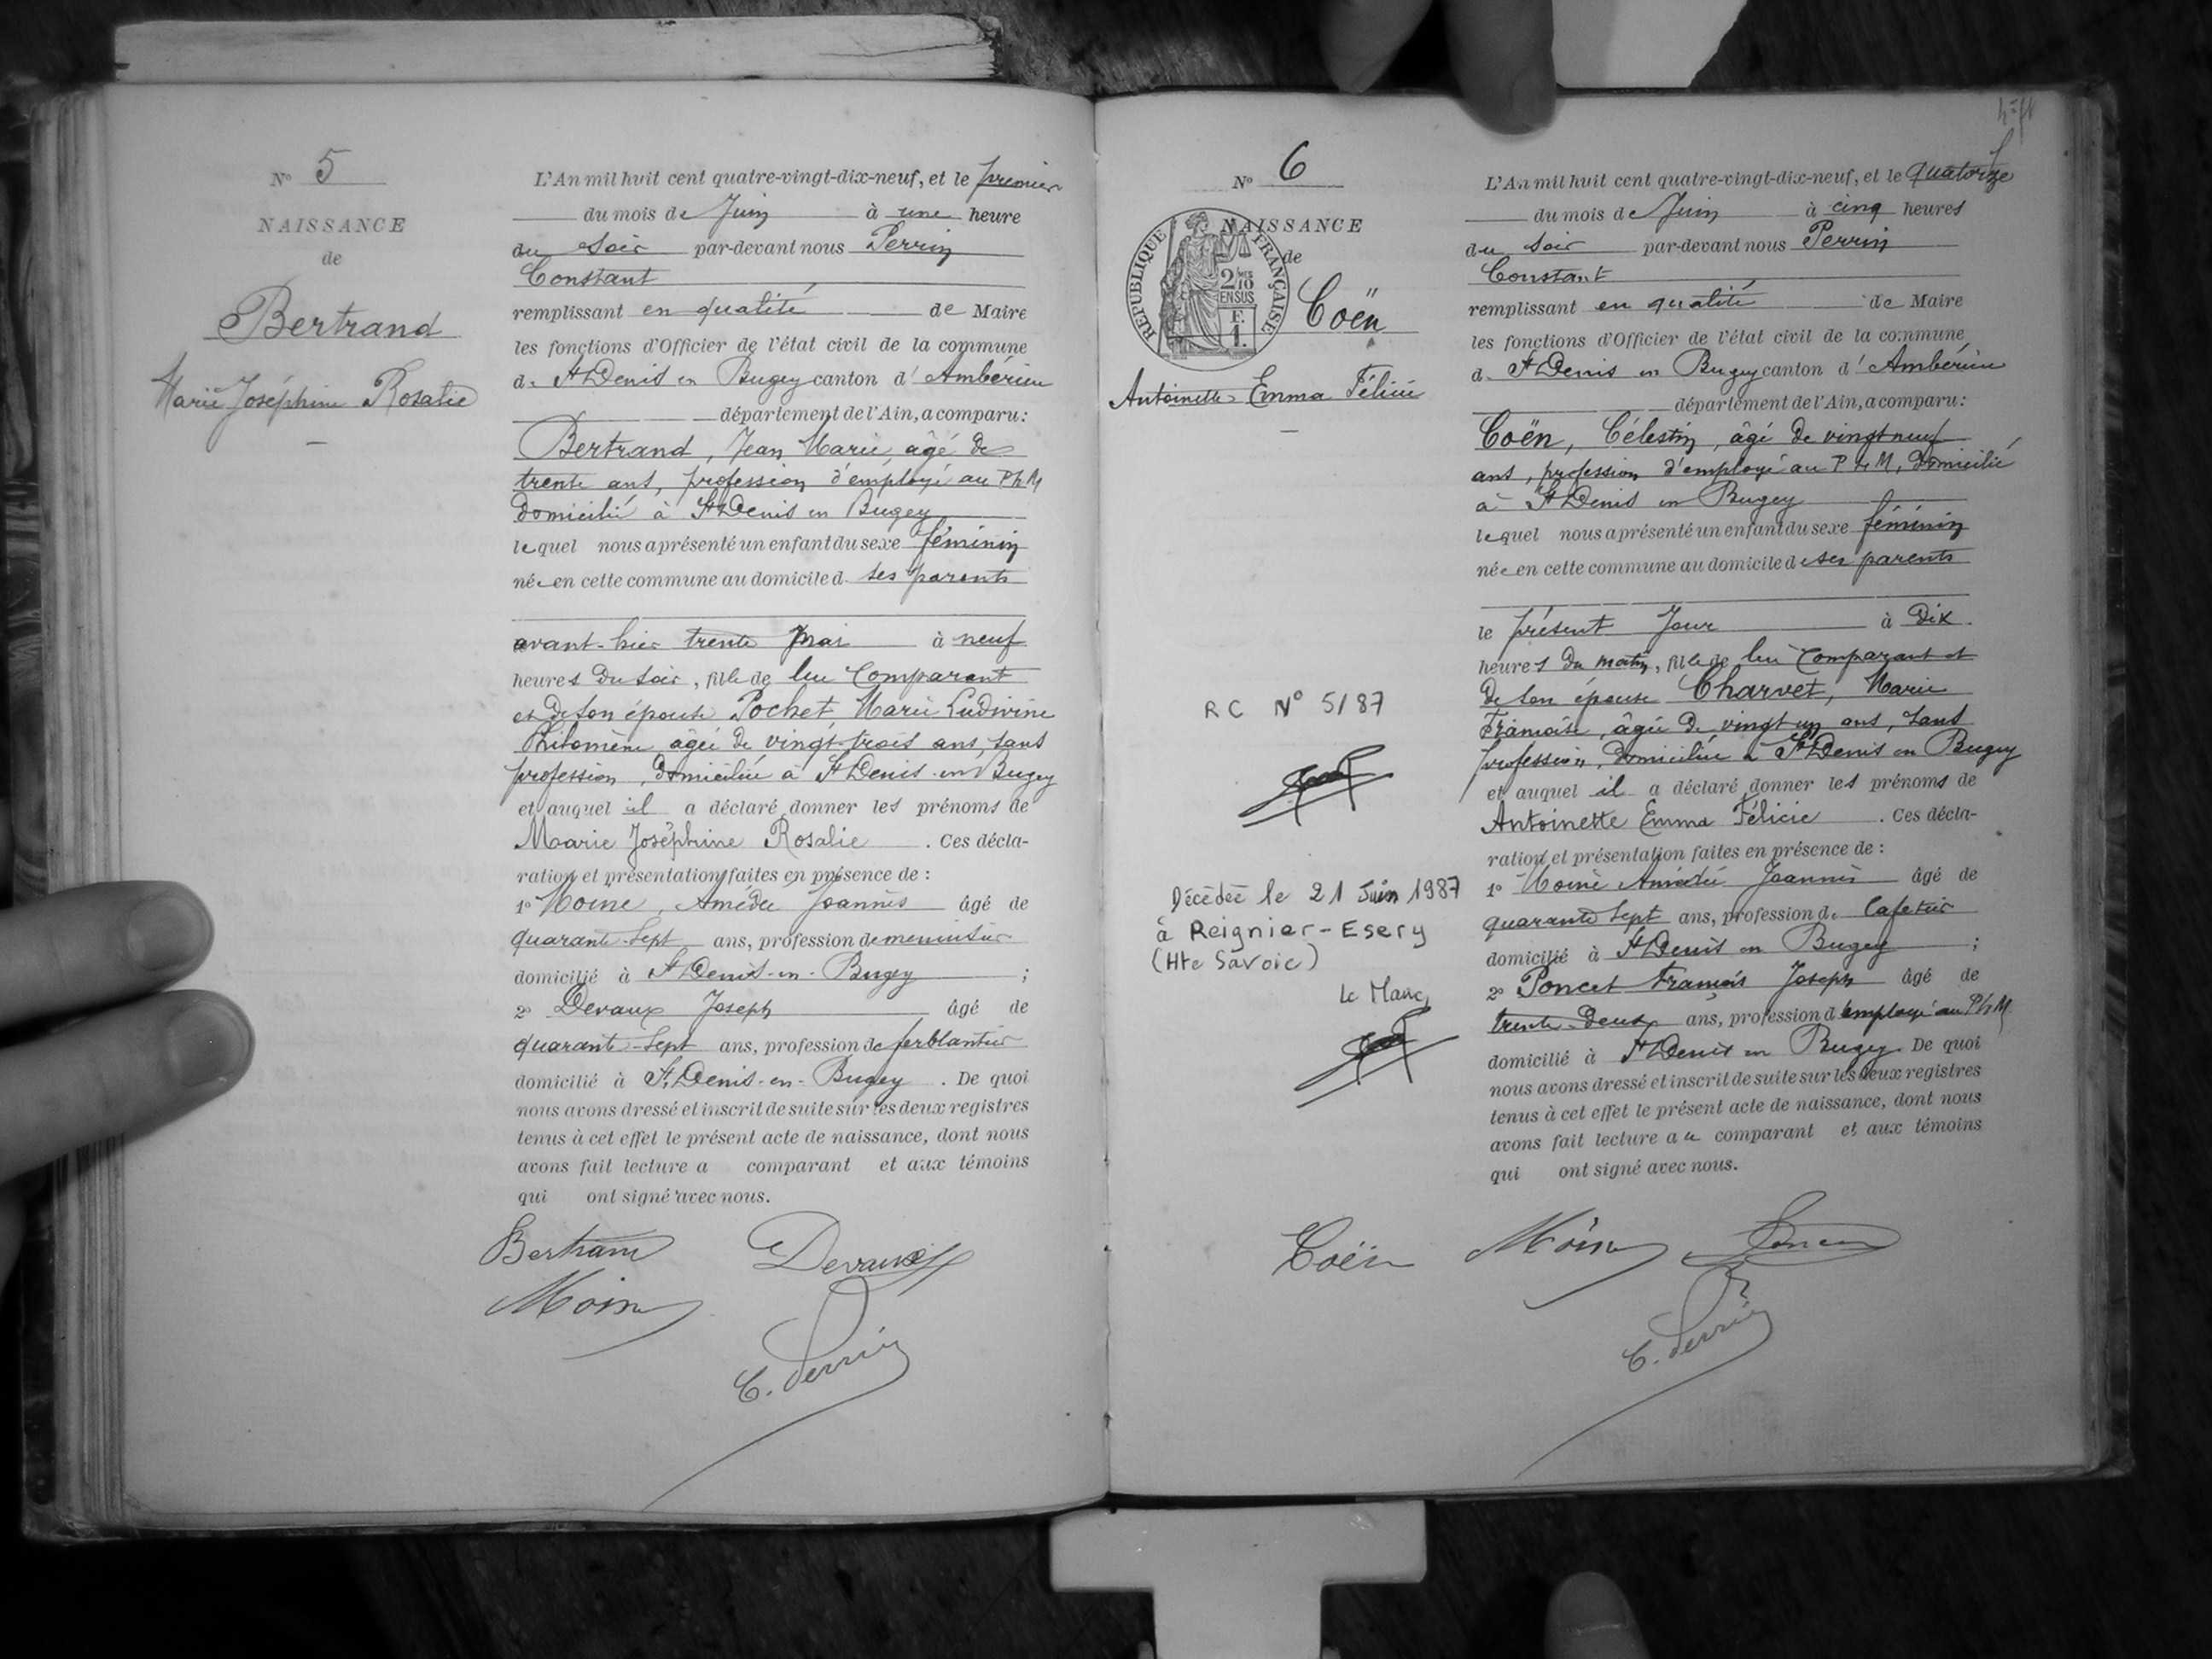 N° 5
NAISSANCE
de
Bertrand
Marie Joséphine Rosalie
L'An mil huit cent quatre-vingt-dix-neuf, et le premier
du mois de Juin à une heure
du soir par-devant nous Perrin
Constant
remplissant en qualité de Maire
les fonctions d'Officier de l'état civil de la commune
de St Denis en Bugey canton d'Ambérieu
département de l'Ain, a comparu:
Bertrand, Jean Marie, âgé de
trente ans, profession d'employé au PLM
domicilié à St Denis en Bugey
lequel nous a présenté un enfant du sexe féminin
née en cette commune au domicile de ses parents
avant-hier trente mai à neuf
heures du soir, fille de lui Comparant
et de son épouse Pochet Marie Ludivine
Philomène âgée de vingt-trois ans, sans
profession, domiciliée à St Denis-en-Bugey
et auquel il a déclaré donner les prénoms de
Marie Joséphine Rosalie. Ces décla-
ration et présentation faites en présence de :
1° Moine, Amédée Joannès âgé de
quarante-sept ans, profession de menuisier
domicilié à St Denis-en-Bugey ;
2° Devaux Joseph âgé de
quarante-sept ans, profession de ferblantier
domicilié à St Denis-en-Bugey. De quoi
nous avons dressé et inscrit de suite sur les deux registres
tenus à cet effet le présent acte de naissance, dont nous
avons fait lecture a comparant et aux témoins
qui ont signé avec nous.
Bertrand Devaux
Moine
C. Perrin
N° 6
NAISSANCE
de
RÉPUBLIQUE FRANÇAISE
2/10 EN SUS
F. 1.
Coën
Antoinette Emma Félicie
RC N° 5/87
Décédée le 21 Juin 1987
à Reignier-Esery
(Hte Savoie)
Le Maire,
L'An mil huit cent quatre-vingt-dix-neuf, et le quatorze
du mois de Juin à cinq heures
du soir par-devant nous Perrin
Constant
remplissant en qualité de Maire
les fonctions d'Officier de l'état civil de la commune
d. St Denis en Bugey canton d'Ambérieu
département de l'Ain, a comparu:
Coën, Célestin, âgé de vingt neuf
ans, profession d'employé au PLM, domicilié
à St Denis en Bugey
lequel nous a présenté un enfant du sexe féminin
née en cette commune au domicile de ses parents
le présent Jour à Dix
heures du matin, fille de lui Comparant et
de son épouse Charvet, Marie
Françoise, âgée de vingt un ans, sans
profession, domiciliée à St Denis en Bugey
et auquel il a déclaré donner les prénoms de
Antoinette Emma Félicie. Ces décla-
ration et présentation faites en présence de :
1° Moine Amédée Joannès âgé de
quarante sept ans, profession de Cafetier
domicilié à St Denis en Bugey ;
2° Poncet François Joseph âgé de
trente-deux ans, profession d'employé au PLM
domicilié à St Denis en Bugey. De quoi
nous avons dressé et inscrit de suite sur les deux registres
tenus à cet effet le présent acte de naissance, dont nous
avons fait lecture au comparant et aux témoins
qui ont signé avec nous.
Coën Moine Poncet
C. Perrin